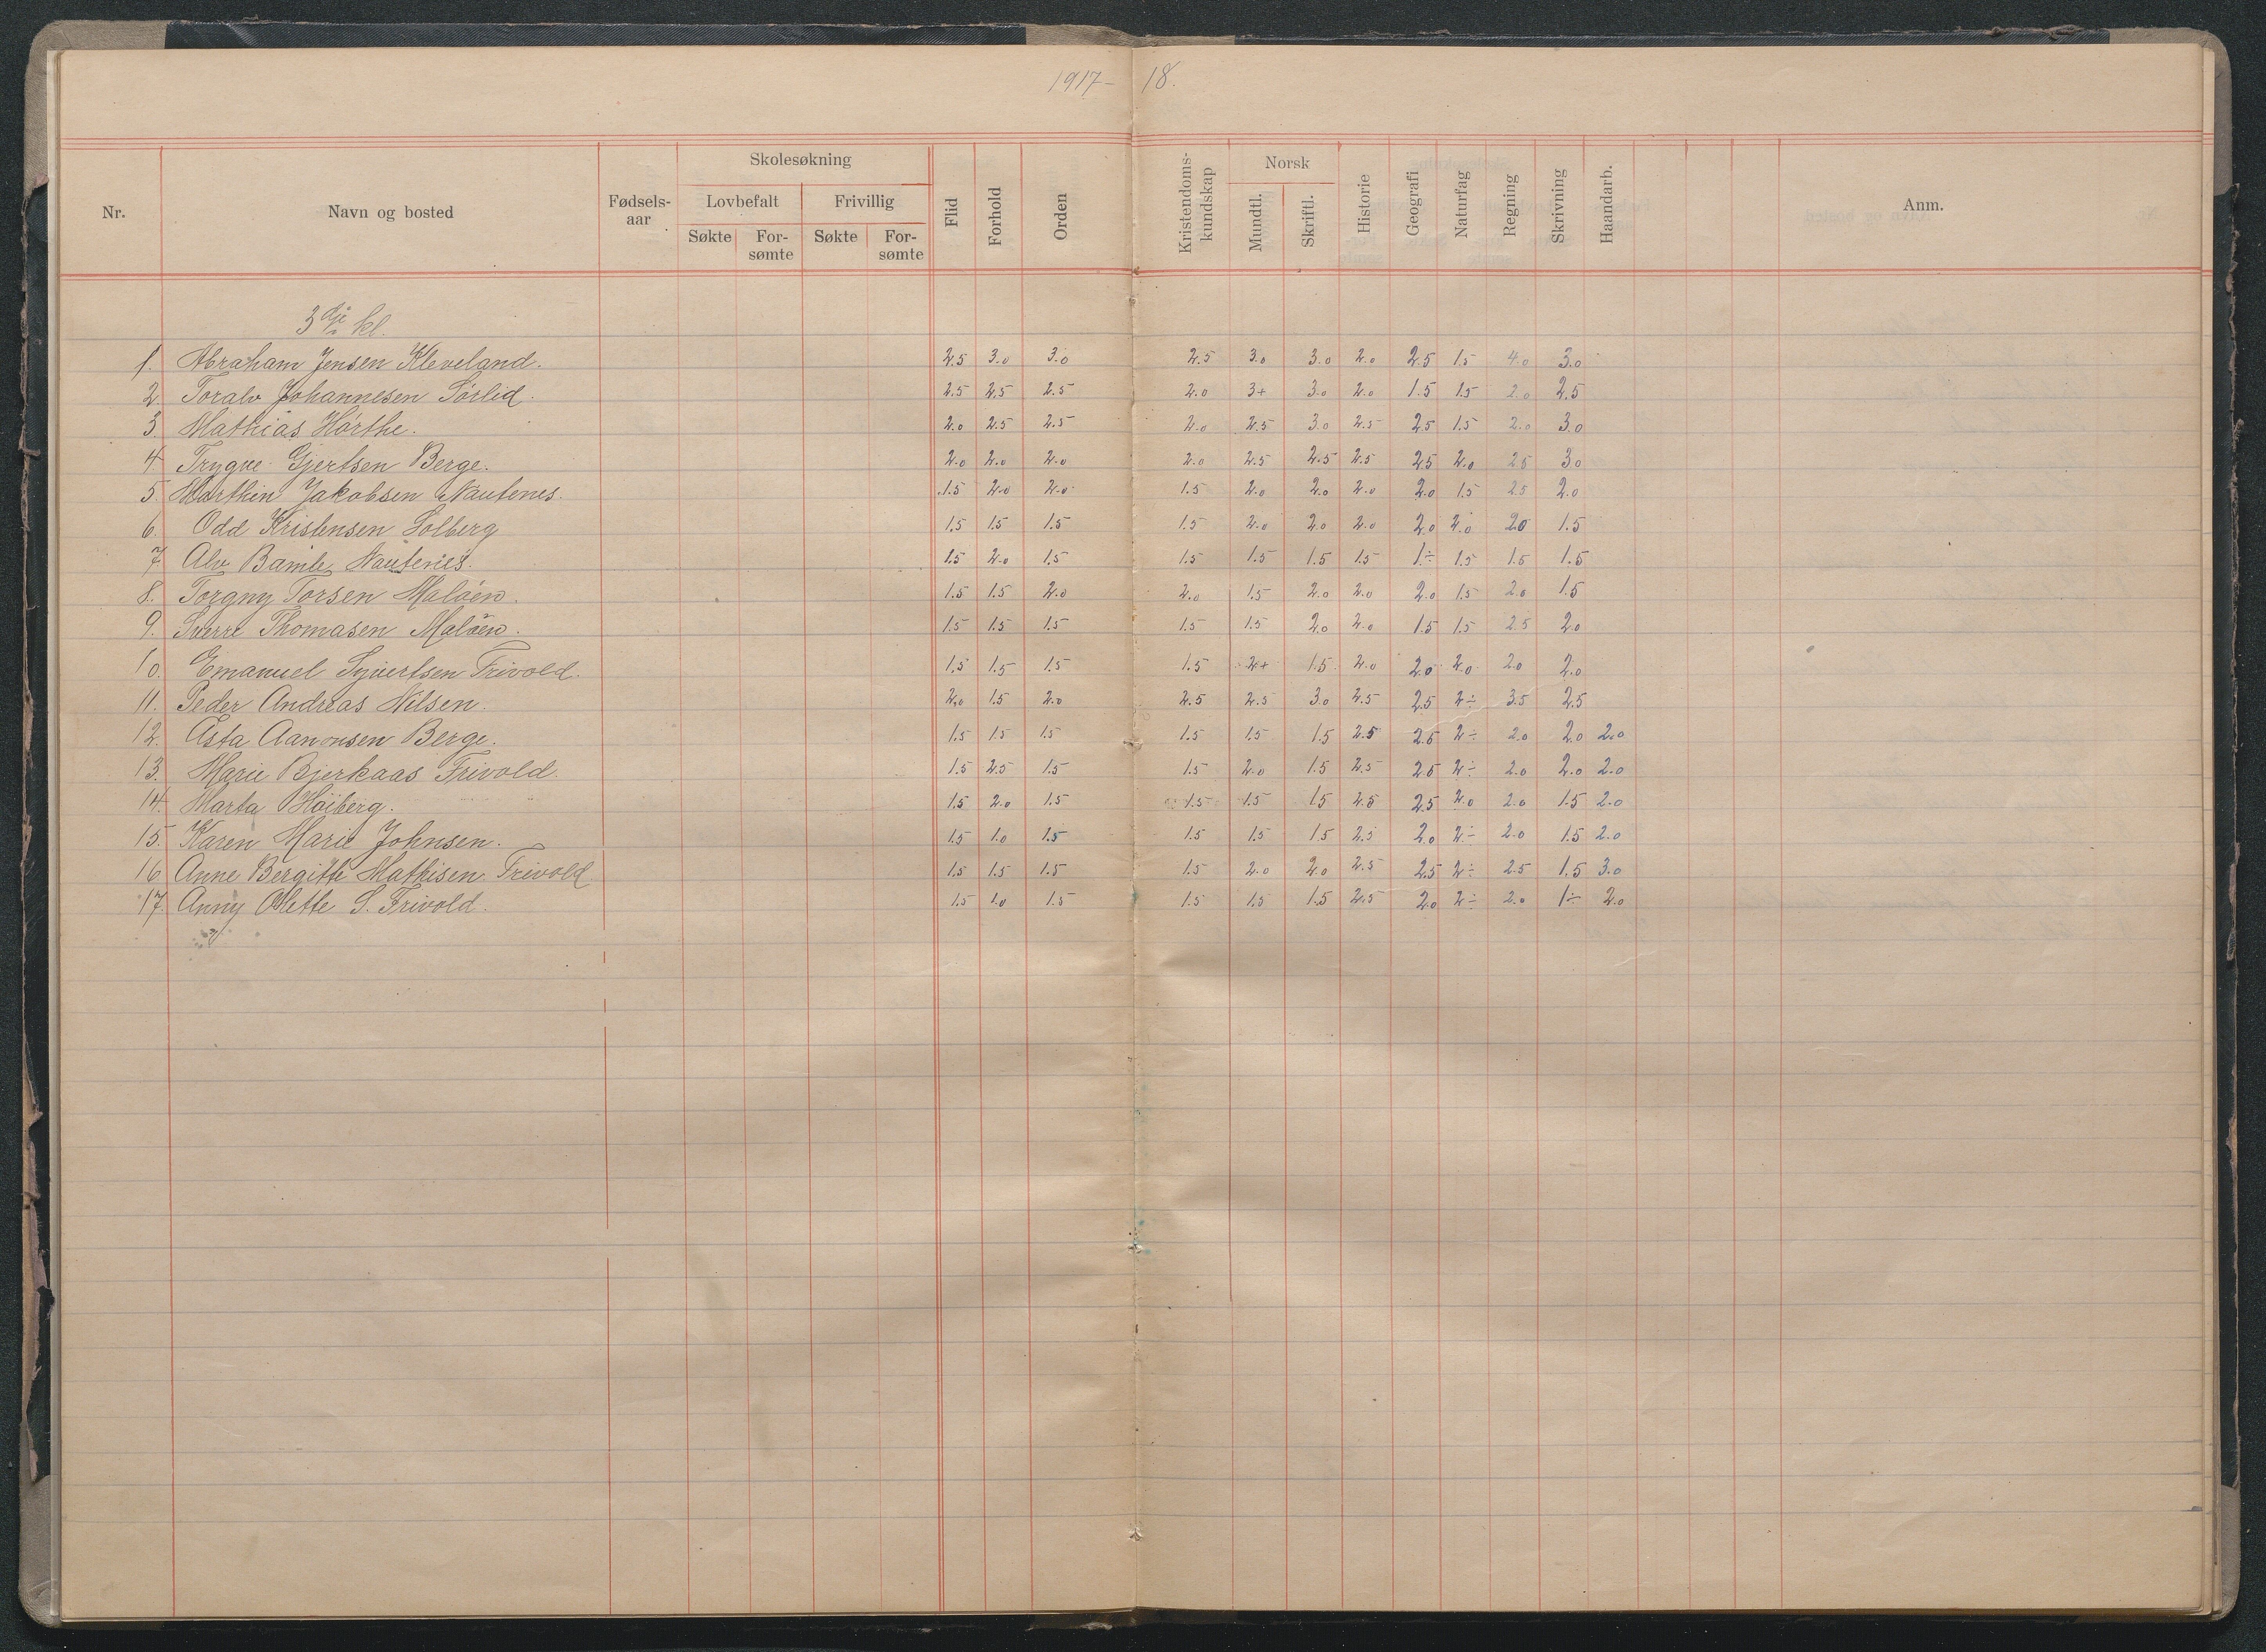 1917-18.
Nr. Navn og bosted Fødsels-aar Skolesøkning Lovbefalt Frivillig Søkte For-sømte Søkte For-sømte Flid Forhold Orden Kristendoms-kundskap Norsk Mundtl. Skriftl. Historie Geografi Naturfag Regning Skrivning Haandarb. Anm.
3dje kl.
1. Abraham Jensen Kleveland. 2.5 3.0 3.0 2.5 3.0 3.0 2.0 2.5 1.5 4.0 3.0
2. Toralv Johannesen Sörlid. 2.5 2.5 2.5 2.0 3+ 3.0 2.0 1.5 1.5 2.0 2.5
3. Mathias Hörthe. 2.0 2.5 2.5 2.0 2.5 3.0 2.5 2.5 1.5 2.0 3.0
4 Trygve Gjertsen Berge. 2.0 2.0 2.0 2.0 2.5 2.5 2.5 2.5 2.0 2.5 3.0
5 Marthin Jakobsen Nautenes. 1.5 2.0 2.0 1.5 2.0 2.0 2.0 2.0 1.5 2.5 2.0
6. Odd Kristensen Solberg 1.5 1.5 1.5 1.5 2.0 2.0 2.0 2.0 2.0 2.0 1.5
7 Alv Bamle, Nautenes. 1.5 2.0 1.5 1.5 1.5 1.5 1.5 1÷ 1.5 1.5 1.5
8. Torgny Torsen Malöen. 1.5 1.5 2.0 2.0 1.5 2.0 2.0 2.0 1.5 2.0 1.5
9. Sverre Thomasen Malöen. 1.5 1.5 1.5 1.5 1.5 2.0 2.0 1.5 1.5 2.5 2.0
10. Emanuel Syvertsen Frivold. 1.5 1.5 1.5 1.5 2+ 1.5 2.0 2.0 2.0 2.0 2.0
11. Peder Andreas Nilsen. 2.0 1.5 2.0 2.5 2.5 3.0 2.5 2.5 2÷ 3.5 2.5
12. Asta Aanonsen Berge. 1.5 1.5 1.5 1.5 1.5 1.5 2.5 2.5 2÷ 2.0 2.0 2.0
13. Marie Bjerkaas Frivold. 1.5 2.5 1.5 1.5 2.0 1.5 2.5 2.5 2÷ 2.0 2.0 2.0
14. Marta Höiberg. 1.5 2.0 1.5 1.5 1.5 1.5 2.5 2.5 2.0 2.0 1.5 2.0
15. Karen Marie Johnsen. 1.5 1.0 1.5 1.5 1.5 1.5 2.5 2.0 2÷ 2.0 1.5 2.0
16 Anne Bergitte Mathisen Frivold 1.5 1.5 1.5 1.5 2.0 2.0 2.5 2.5 2÷ 2.5 1.5 3.0
17. Anny Olette S. Frivold. 1.5 1.0 1.5 1.5 1.5 1.5 2.5 2.0 2÷ 2.0 1÷ 2.0